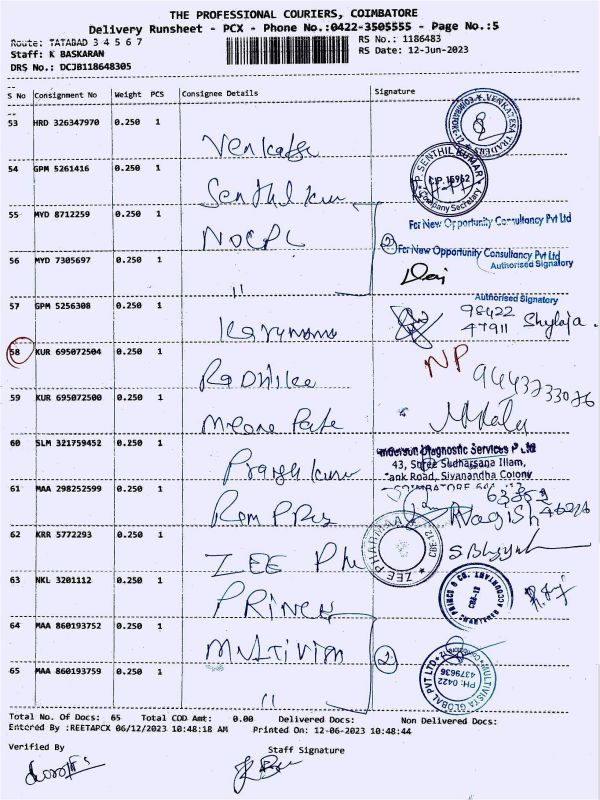 THE PROFESSIONAL COURIERS, COIMBATORE
Delivery Runsheet - PCX - Phone No.:0422-3505555 - Page No.:5
Route: TATABAD 3 4 5 6 7
RS No.: 1186483
Staff: K BASKARAN
RS Date: 12-Jun-2023
DRS No.: DCJB118648305
S No Consignment No Weight PCS Consignee Details Signature
53 HRD 326347970 0.250 1
VENKATESA TRADERS
54 GPM 5261416 0.250 1
Senthil kum
P. SENTHIL KUMAR
C.P. 15962
Company Secretary
55 MYD 8712259 0.250 1
NOCPL
For New Opportunity Consultancy Pvt Ltd
2 For New Opportunity Consultancy Pvt Ltd
Authorised Signatory
56 MYD 7305697 0.250 1
"
Authorised Signatory
57 GPM 5256308 0.250 1
98422
47911 Shylaja.
58 KUR 695072504 0.250 1
Radhika
NP 9443733076
59 KUR 695072500 0.250 1
60 SLM 321759452 0.250 1
Diagnostic Services P Ltd
43, Sudharsana Illam,
Road, Sivanandha Colony
COIMBATORE
61 MAA 298252599 0.250 1
Nagish
62 KRR 5772293 0.250 1
ZEE Ph
ZEE PHARMA
63 NKL 3201112 0.250 1
PRINCE
PRINCE & CO.
CHARTERED ACCOUNTANT
64 MAA 860193752 0.250 1
Multivista
2
MULTIVISTA GLOBAL PVT LTD
PH: 0422
4379636
65 MAA 860193759 0.250 1
"
Total No. Of Docs: 65 Total COD Amt: 0.00 Delivered Docs: Non Delivered Docs:
Entered By :REETAPCX 06/12/2023 10:48:18 AM Printed On: 12-06-2023 10:48:44
Verified By
Staff Signature